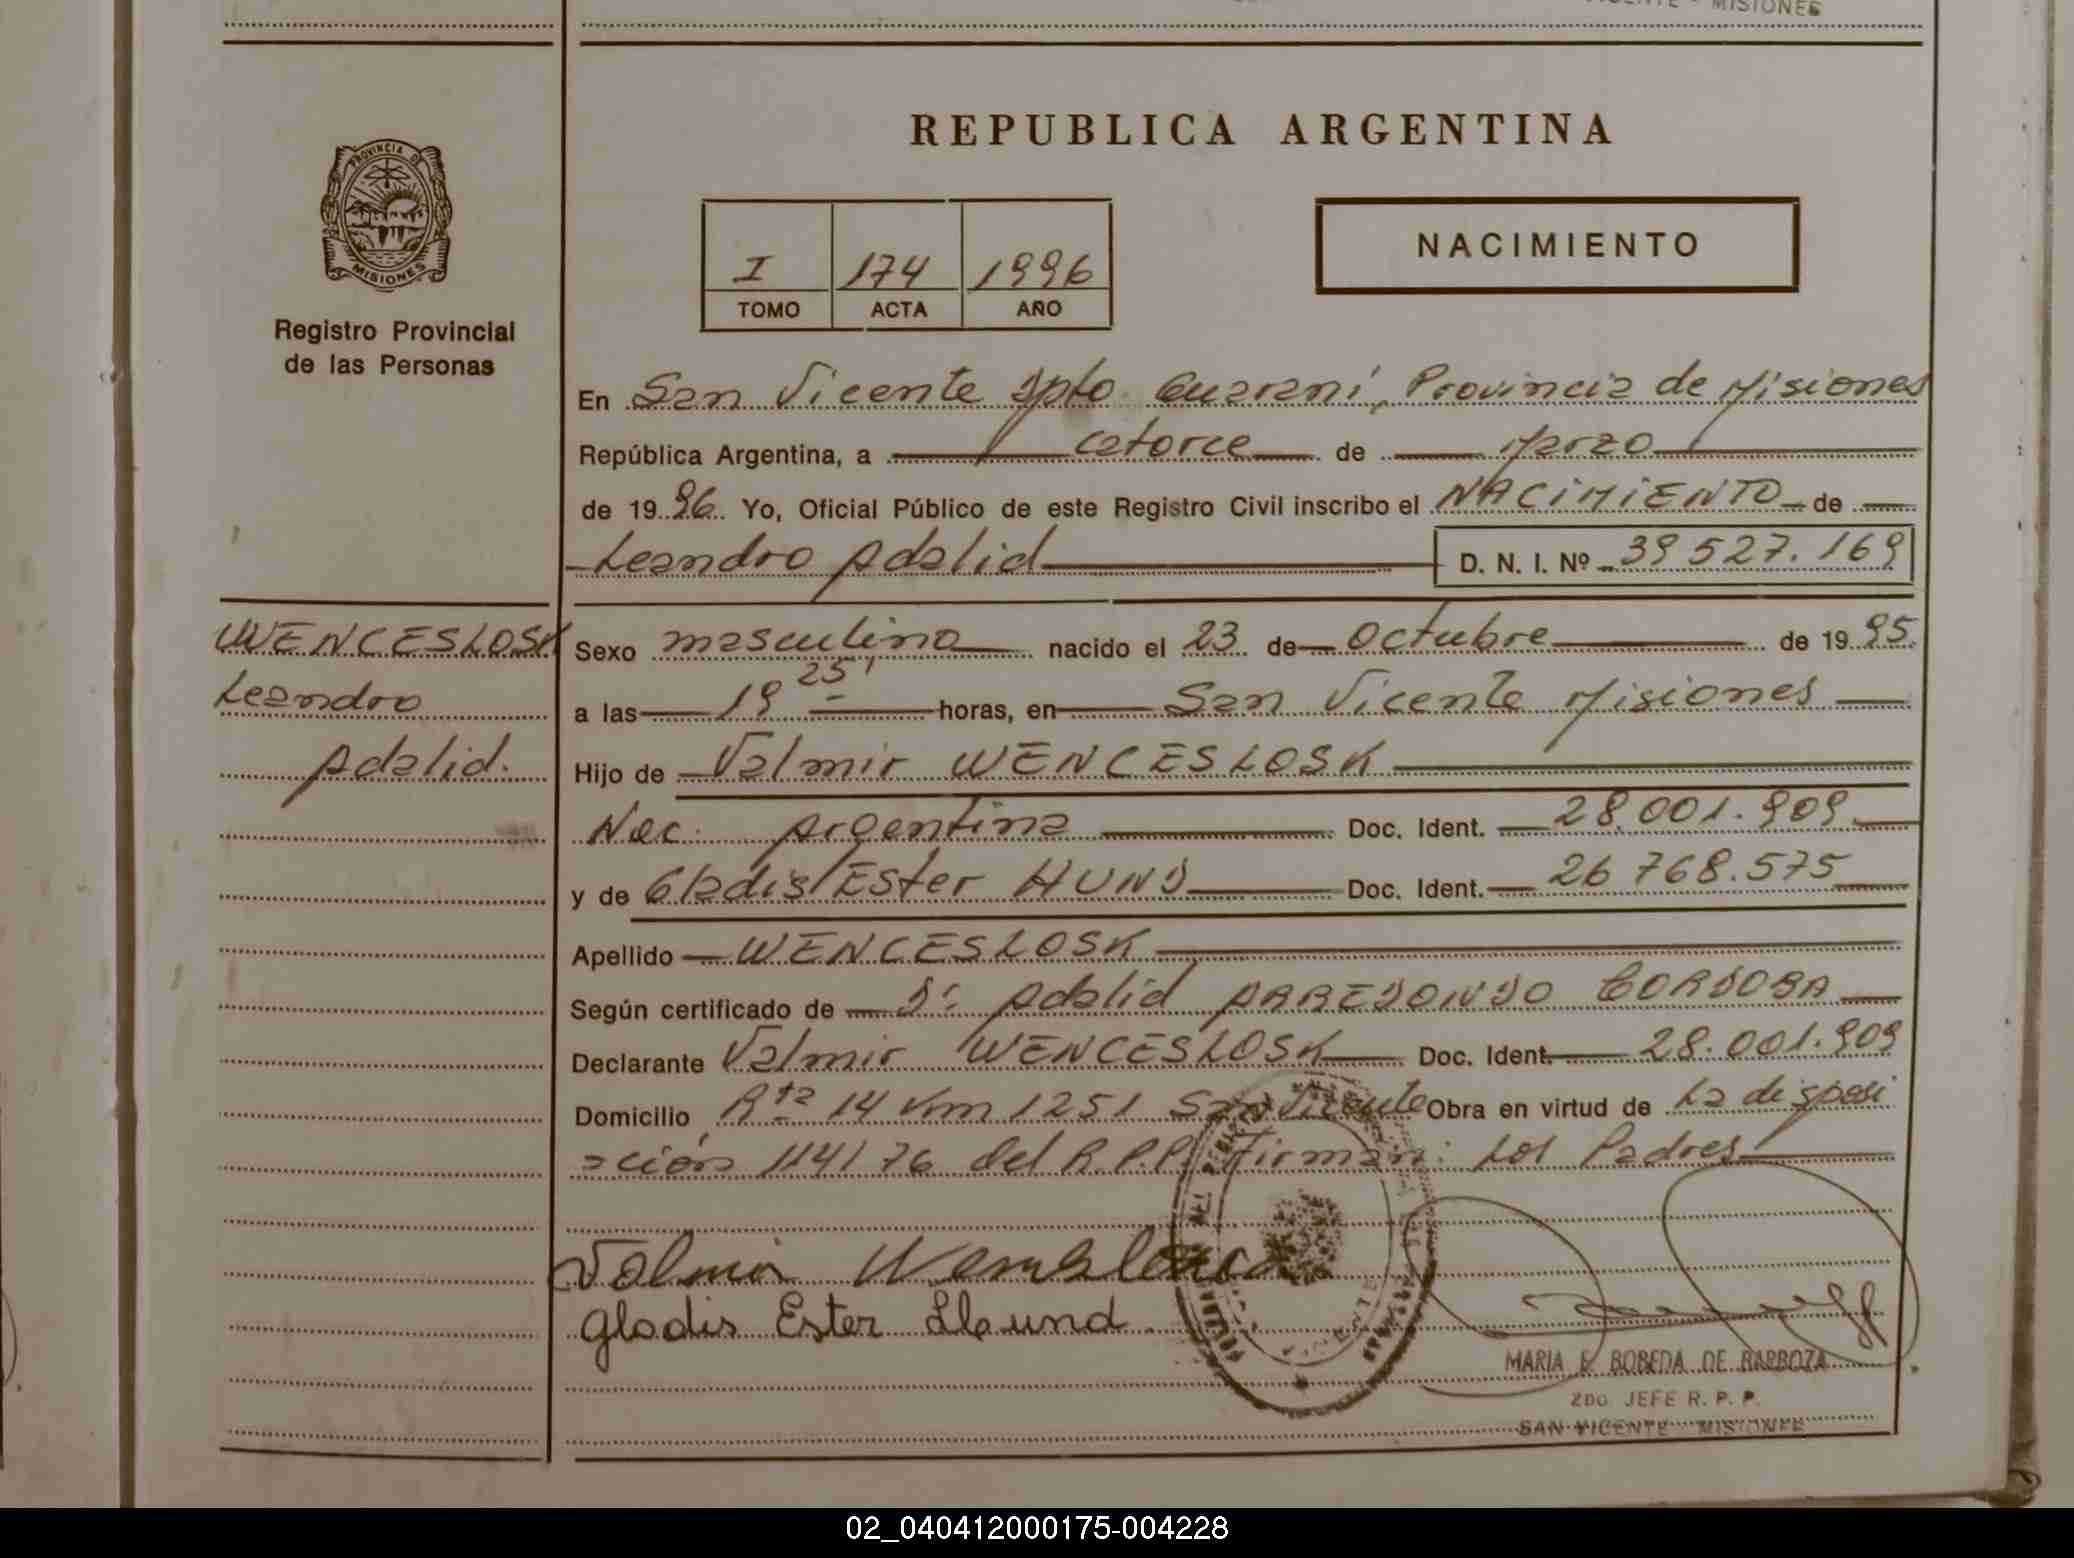 MISIONES
REPUBLICA ARGENTINA
PROVINCIA DE
MISIONES
Registro Provincial
de las Personas
I 174 1996
TOMO ACTA AÑO
NACIMIENTO
En San Vicente Dpto. Guaraní, Provincia de Misiones
República Argentina, a catorce de Marzo
de 1996. Yo, Oficial Público de este Registro Civil inscribo el NACIMIENTO de
Leandro Adalid D. N. I. Nº 39 527.169
WENCESLOSK
Leandro
Adalid.
Sexo masculino nacido el 23 de Octubre de 1995.
a las 19 25' horas, en San Vicente Misiones
Hijo de Valmir WENCESLOSK
Nac. Argentina Doc. Ident. 28.001.909
y de Gladis Ester HUND Doc. Ident. 26 768.575
Apellido WENCESLOSK
Según certificado de Dr. Adalid ARREDONDO CORDOBA
Declarante Valmir WENCESLOSK Doc. Ident. 28.001.909
Domicilio Rta 14 Km 1251 San Vicente Obra en virtud de La disposi
ación 114/76 del R.P.P. Firman: Los Padres
Valmir
Gladis Ester Hund
MARIA E. BOBEDA DE BARBOZA
2DO JEFE R. P. P.
SAN VICENTE MISIONES
02_040412000175-004228